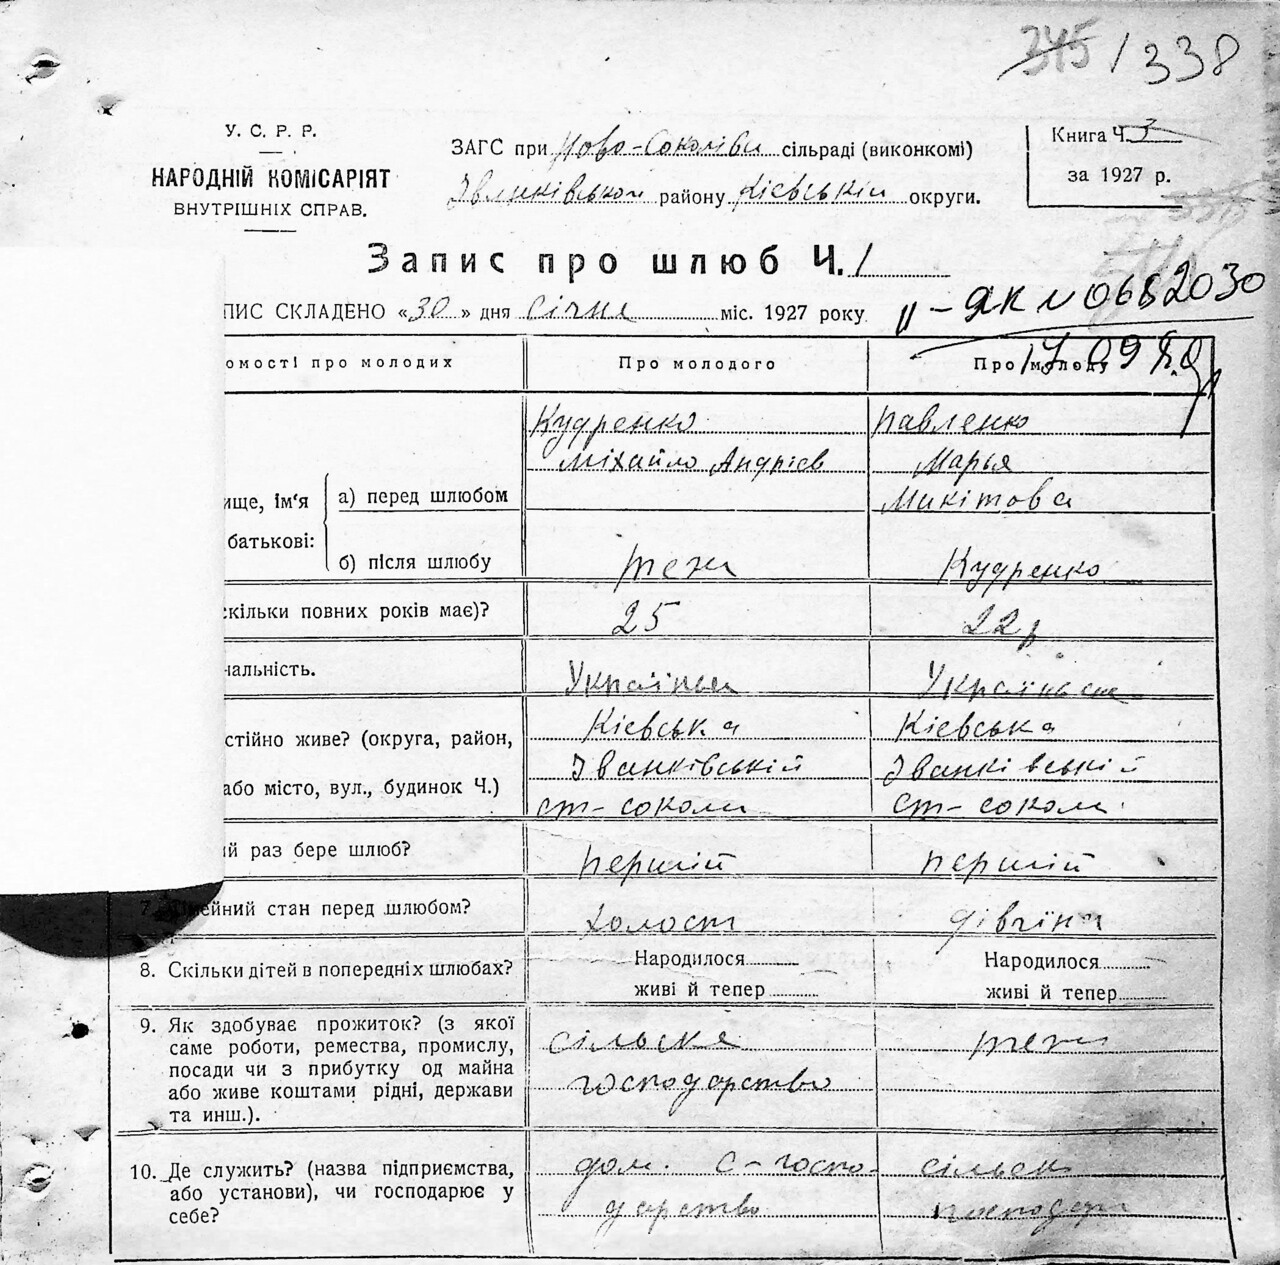 345 / 338
У. С. Р. Р.
НАРОДНІЙ КОМІСАРІЯТ
ВНУТРІШНІХ СПРАВ.
ЗАГС при Ново-Соколівц сільраді (виконкомі)
Іванківськом району Кієвській округи.
Книга Ч. 3
за 1927 р.
Запис про шлюб Ч. 1
ПИС СКЛАДЕНО «30» дня січня міс. 1927 року
II-ЯК N 0682030
омості про молодих
Про молодого
Про молоду
Кудренко
Міхайло Андрієв
Павленко
Марья
Микітовa
ище, ім'я
батькові:
а) перед шлюбом
б) після шлюбу
теж
Кудренко
скільки повних років має)?
25
22 р
нальність.
Українець
Українська
стійно живе? (округа, район,
або місто, вул., будинок Ч.)
Кієвська
Іванківській
ст-соколи
Кієвська
Іванківській
ст-соколи
ий раз бере шлюб?
першій
першій
7. шлюбом?
ейний стан перед
холост
дівчина
8. Скільки дітей в попередніх шлюбах?
Народилося
живі й тепер
Народилося
живі й тепер
9. Як здобуває прожиток? (з якої
саме роботи, ремества, промислу,
посади чи з прибутку од майна
або живе коштами рідні, держави
та инш.).
сільске
господарство
теж
10. Де служить? (назва підприємства,
або установи), чи господарює у
себе?
дом. с-госпо-
дарство
сільск
господар